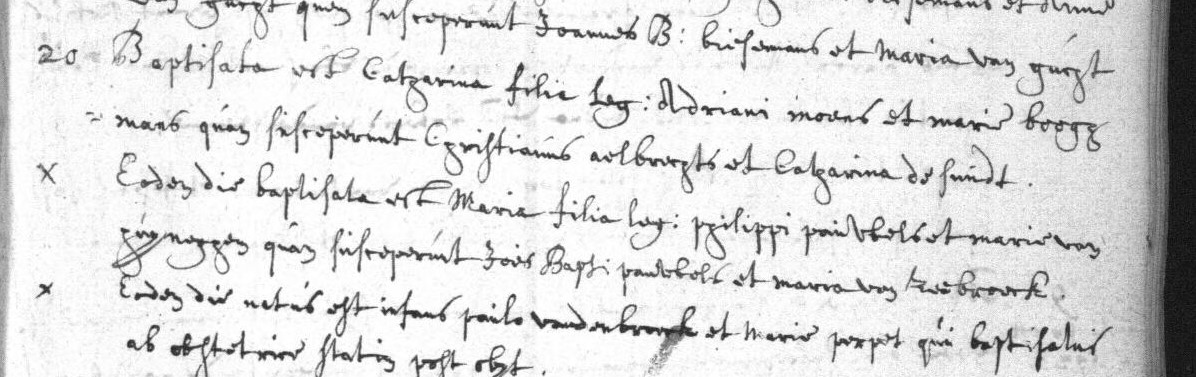 quam susceperunt Joannes B: biesemans et Maria van gucht
20 Baptisata est Catharina filia leg: Adriani moens et marie
= mans quam susceperunt Christianus aelbrechts et Catharina de smidt.
x Eodem die baptisata est Maria filia leg: philippi pauwbels et marie van
quam susceperunt Joes Bapt: pauwbels et maria van reebroeck.
x Eodem die natus est infans paulo vandenbroeck et Marie perpet qui baptisatus
ab obstetrice statim post obyt.